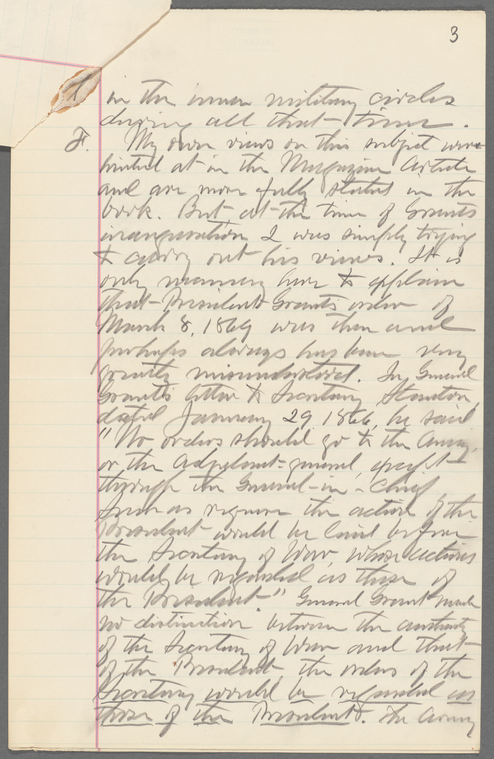 3
in the inner military circles
during all that time.
F. My own views on this subject were
hinted at in the Magazine Article
and are more fully stated in the
book. But at the time of Grants
inauguration, I was simply trying
to carry out his views. It is
only necessary here to explain
that President Grant's order of
March 8, 1869 was then and
perhaps always has been very
greatly misunderstood. In General
Grant's letter to Secretary Stanton
dated January 29 1866, he said
"No orders should go to the Army,
or the Adjutant-general, except
through the General-in-Chief
Such as require the action of the
President would be laid before
the Secretary of War, whose actions
would be regarded as those of
the President." General Grant made
no distinction between the authority
of the Secretary of War and that
of the President, the orders of the
Secretary would be regarded as
those of the President. The Army